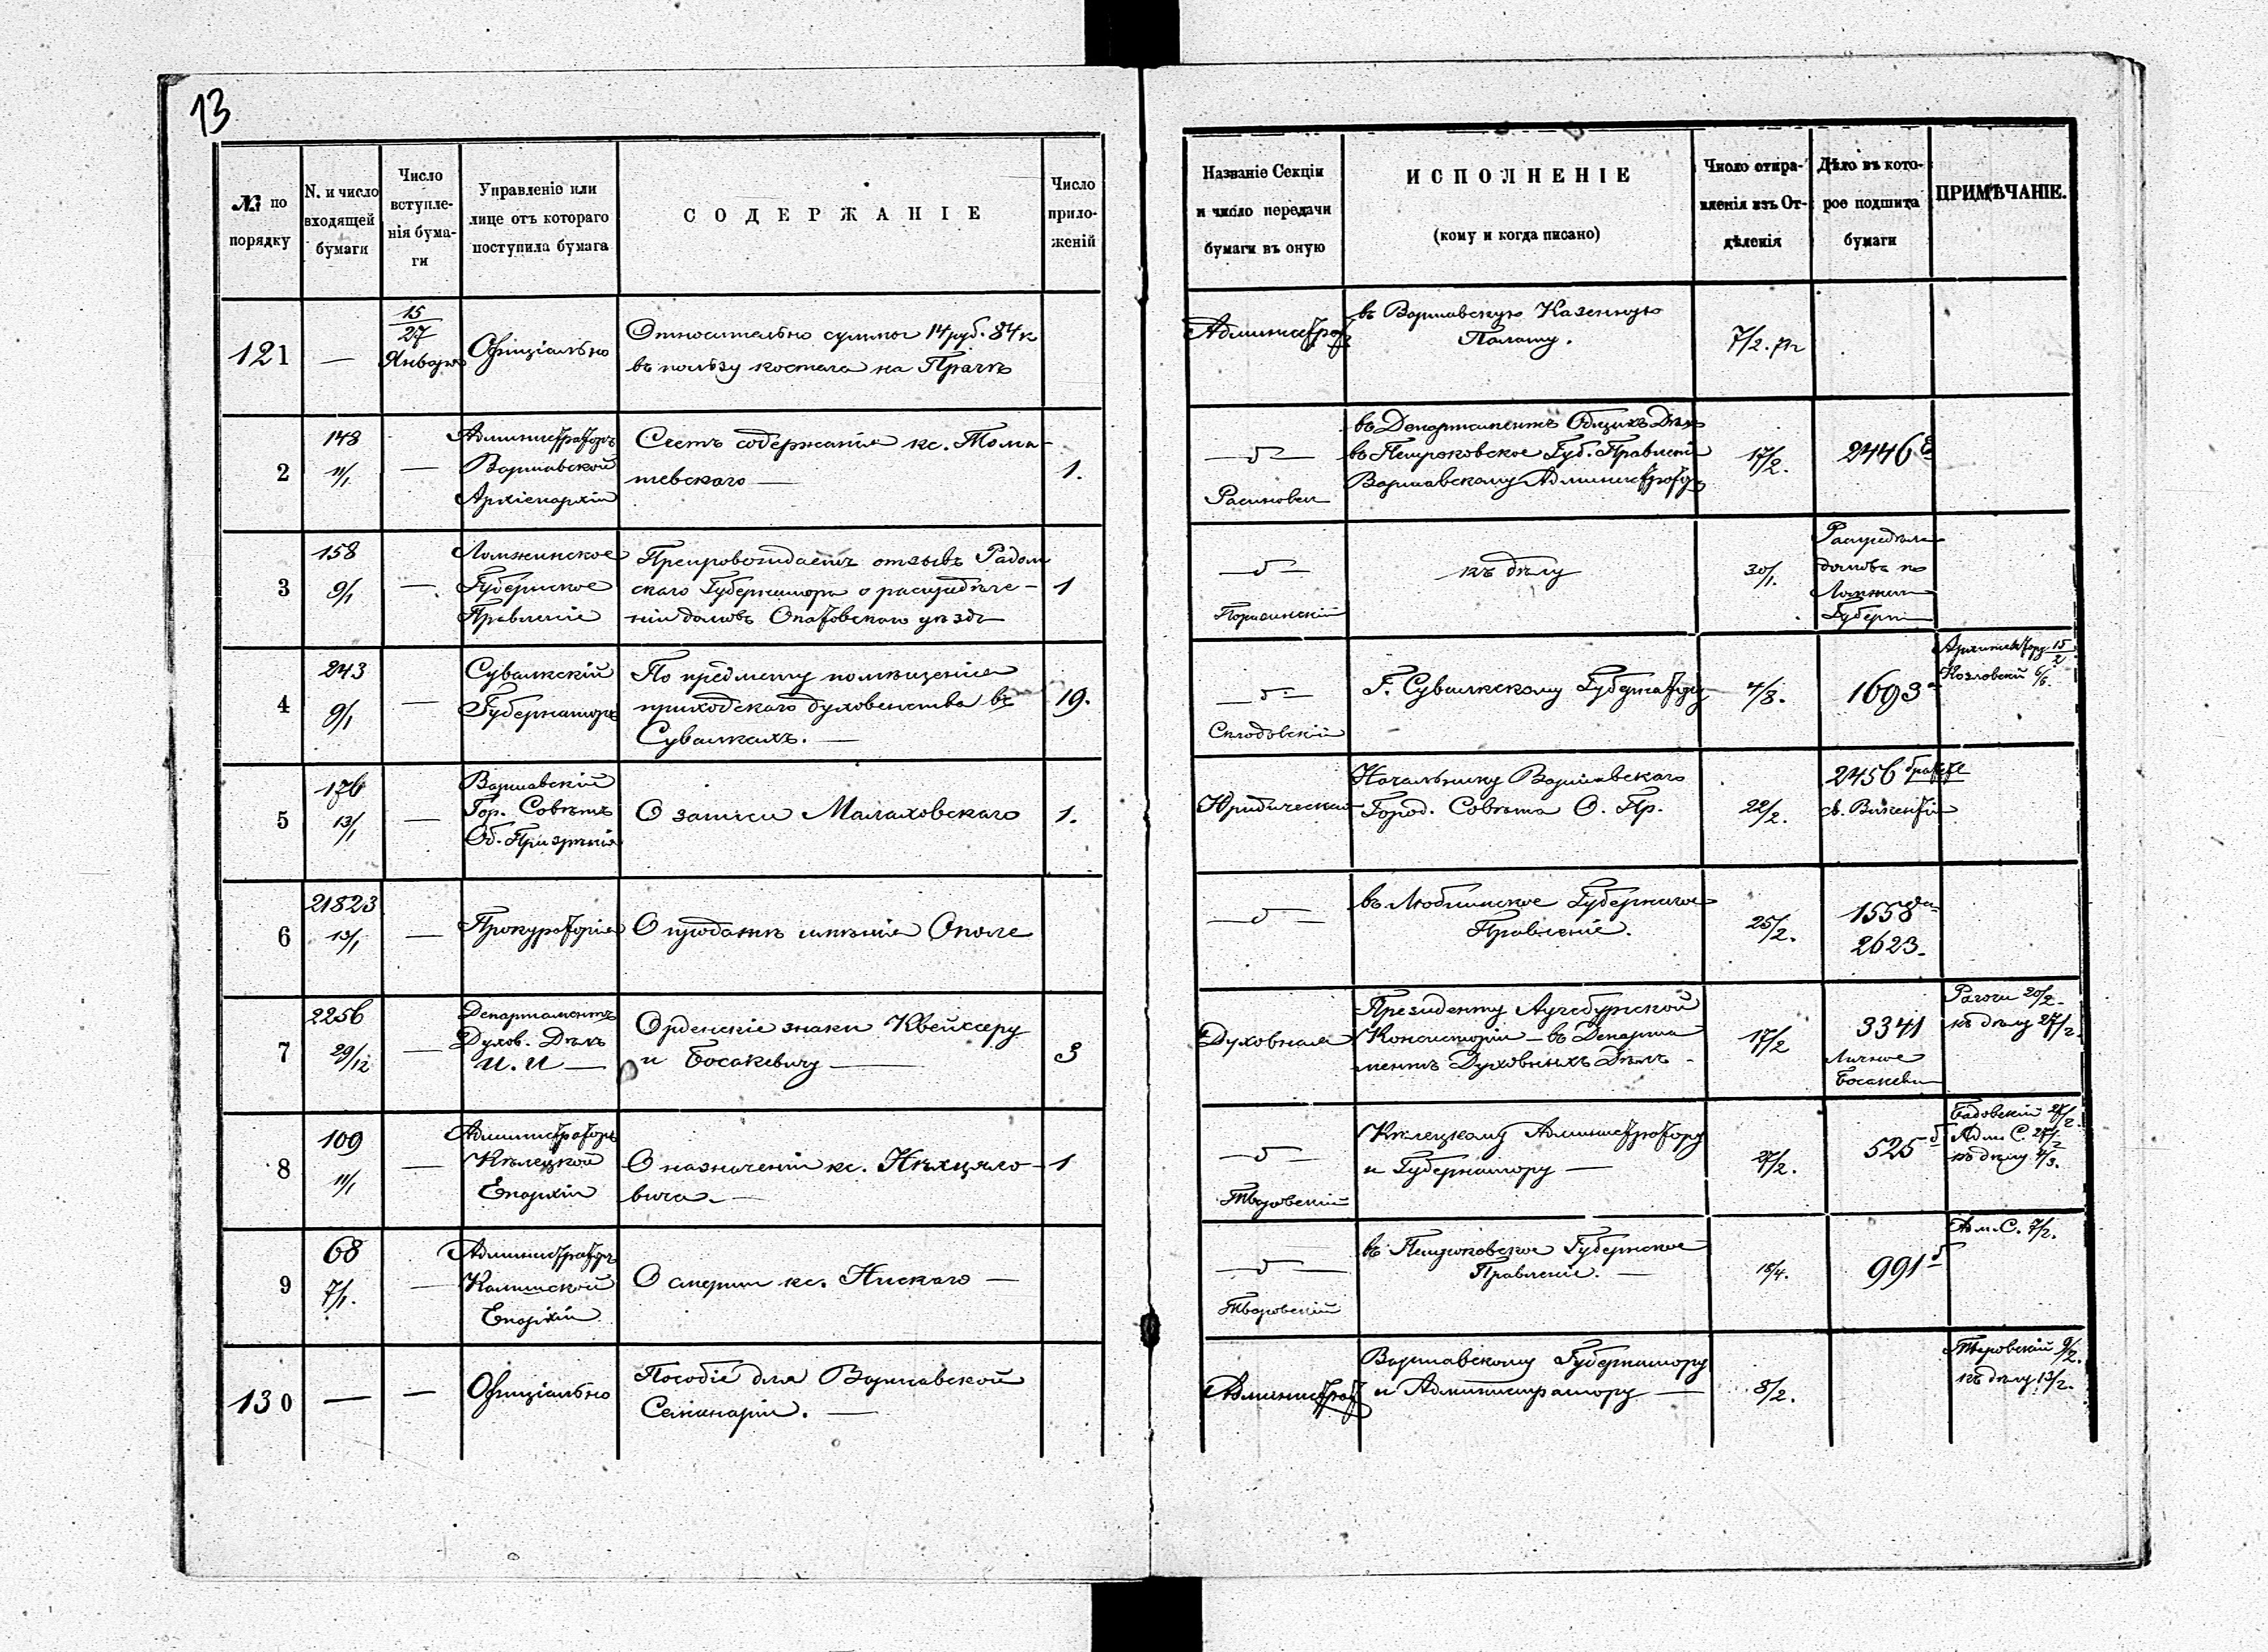 13
№ по порядку
N. и число входящей бумаги
Число вступле-нія бума-ги
Управленіе или лице отъ котораго поступила бумага
СОДЕРЖАНІЕ
Число прило-женій
Названіе Секціи и число передачи бумаги въ оную
ИСПОЛНЕНІЕ
(кому и когда писано)
Число отпра-вленія изъ От-дѣленія
Дѣло въ кото-рое подшита бумаги
ПРИМѢЧАНІЕ.
121
—
15/27
Января
Официіально
Относительно суммы 14 руб. 84 к
въ пользу костела на Прагѣ
Администрат
въ Варшавскую Казенную
Палату.
7/2.
2
148
11/1
—
Администраторъ
Варшавской
Архіепархіи
Счетъ содержанія кс. Тома-
шевскаго —
1.
—„—
въ Департаментъ Общихъ Дѣлъ
въ Петроковское Губ. Правленіе
Варшавскому Администратору
17/2.
2446
3
158
9/1
—
Ломжинское
Губернское
Правленіе
Препровождаетъ отзывъ Радом
скаго Губернатора о распредѣле-
ніи домовъ Опатовскаго уѣзда
1
—„—
къ дѣлу
30/1.
Распредѣле
домовъ по
Ломжин
Губерніи
4
243
9/1
—
Сувалкскій
Губернаторъ
По предмету помѣщенія
приходскаго духовенства въ
Сувалкахъ. —
19.
—„—
Склодовскій
Г. Сувалкскому Губернатору
4/8.
1693
Архитектору 15/2
Козловскій 6/6.
5
176
13/1
—
Варшавскій
Гор. Совѣтъ
Об. Призрѣнія
О записи Малаховскаго
1.
Юридическая
Начальнику Варшавскаго
Город. Совѣта О. Пр.
22/2.
2456
св. Викентія
6
21823
13/1
—
Прокураторія
О продажѣ имѣнія Ополе
—„—
въ Люблинское Губернское
Правленіе.
25/2.
1558
2623.
7
2256
29/12
—
Департаментъ
Духов. Дѣлъ
И. И —
Орденскіе знаки Квейссеру
и Босакевичу —
3
Духовная
Президенту Аугсбургской
Консисторіи — въ Департа
ментъ Духовныхъ Дѣлъ
17/2
3341
Личное
Босакеви
20/2.
къ дѣлу 27/2.
8
109
11/1
—
Администраторъ
Кѣлецкой
Епархіи
О назначеніи кс. Нѣхцяло-
вича. —
1
—„—
Тваровскій
Кѣлецкому Администратору
и Губернатору —
27/2.
525
27/2.
Адм. С. 27/2
къ дѣлу 4/3.
9
68
7/1.
—
Администраторъ
Калишской
Епархіи
О смерти кс. Нискаго —
—„—
Тваровскій
въ Петроковское Губернское
Правленіе. —
18/4.
991
Адм. С. 7/2.
130
—
—
Официіально
Пособіе для Варшавской
Семинаріи. —
Администрат
Варшавскому Губернатору
и Администратору —
8/2.
Тваровскій 9/2.
къ дѣлу 13/2.